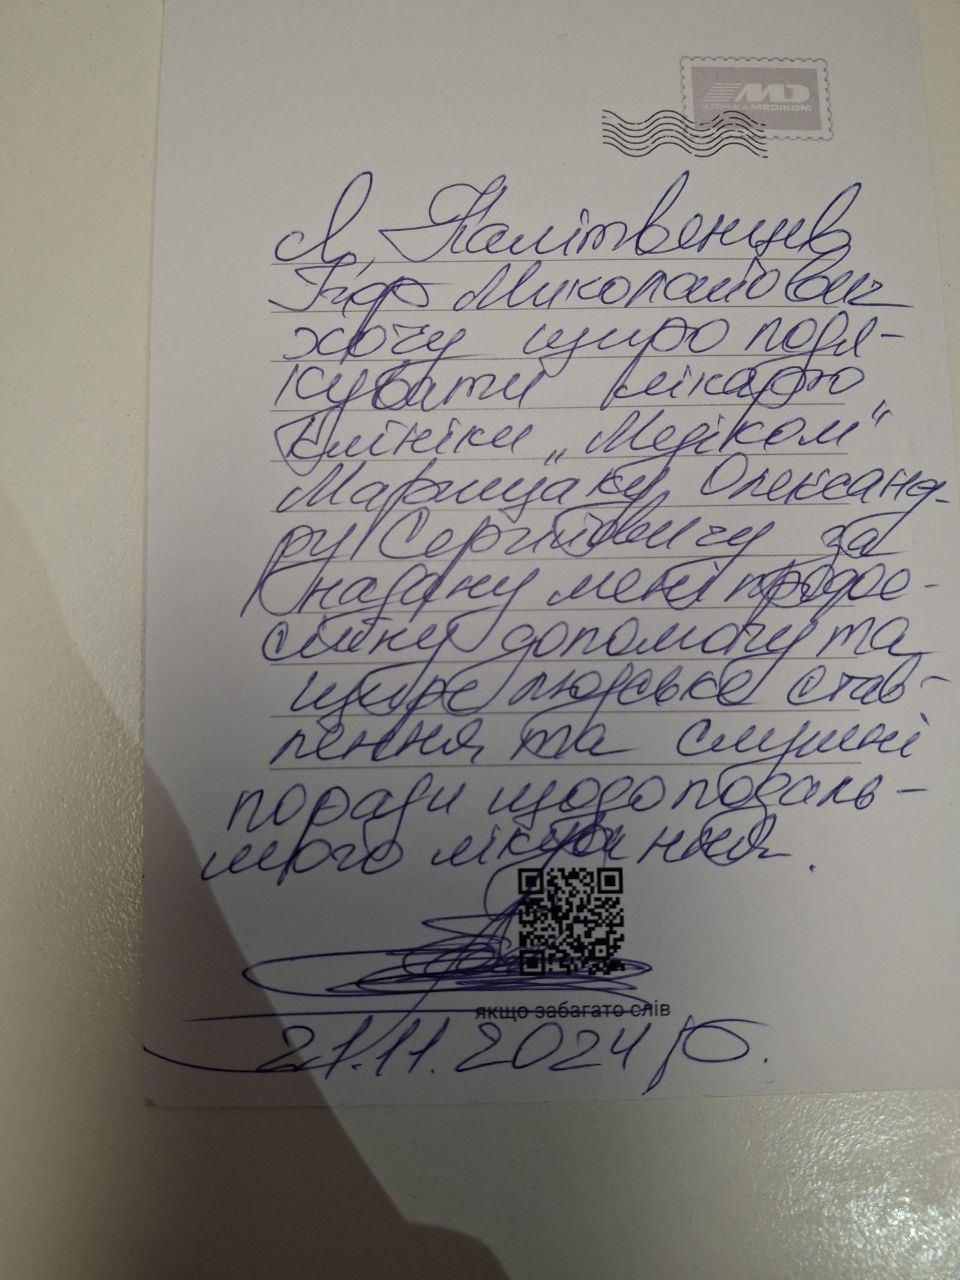 MD
КЛІНІКАМЕДІКОМ
Я, Калітвенцев
Ігор Миколайович
хочу щиро подя-
кувати лікарю
клініки „Медіком"
Марищаку Олександ-
ру Сергійовичу за
надану мені профе-
сійну допомогу та
щире людське став-
лення та слушні
поради щодо подаль-
шого лікування.
якщо забагато слів
21.11.2024 р.